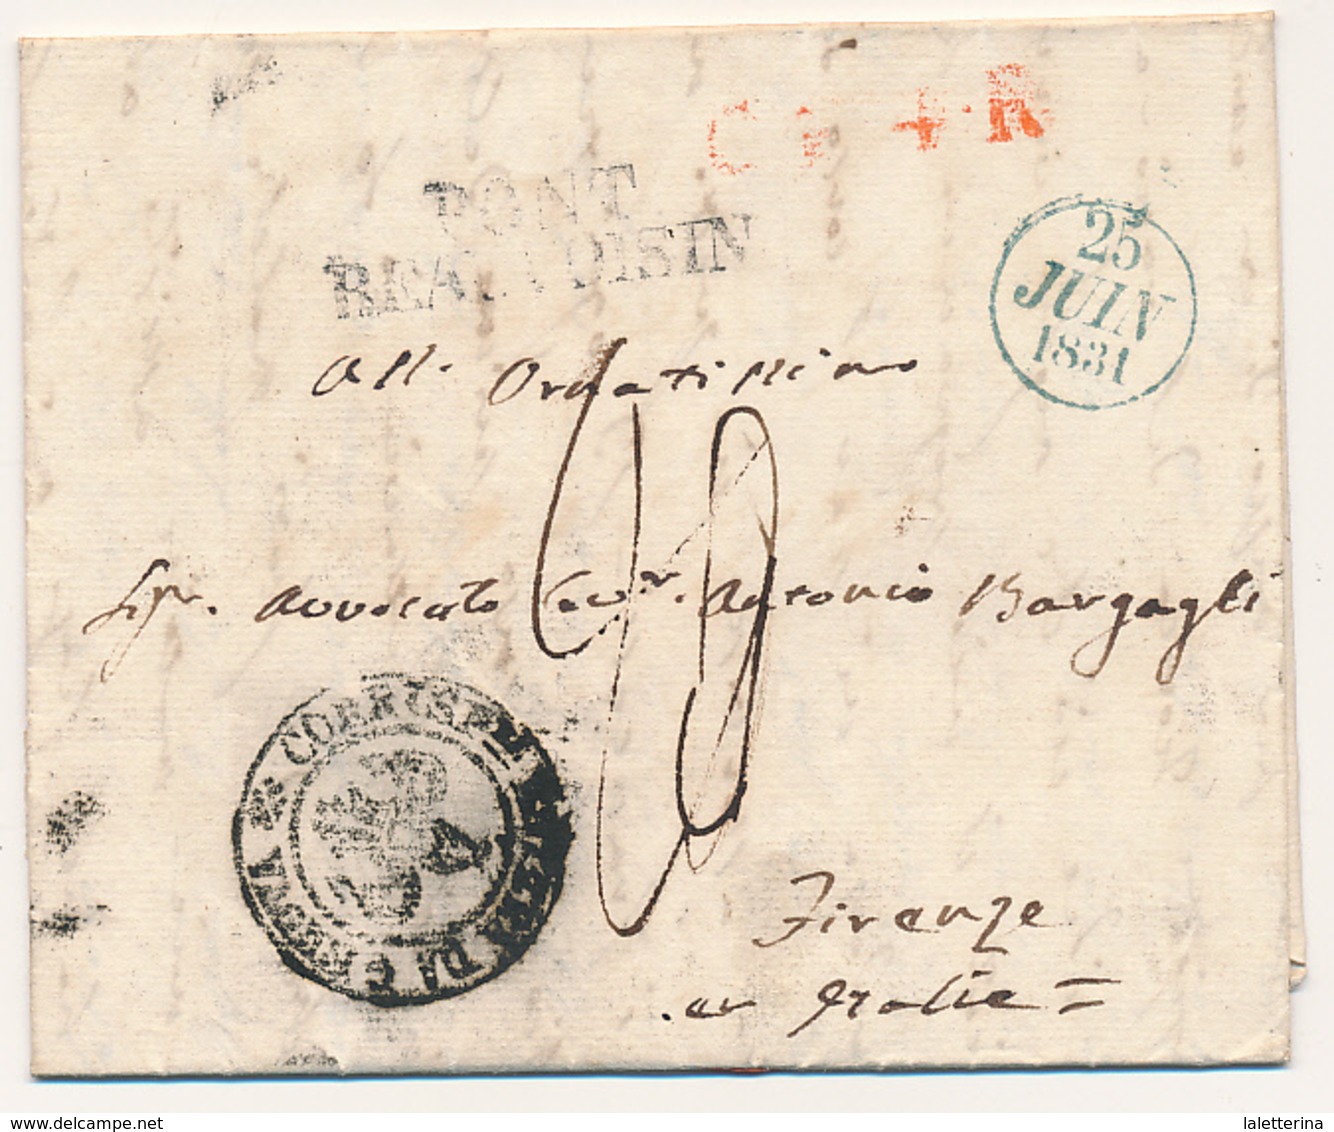 C + R
PONT
BEAUVOISIN
25
JUIN
1831
All. Ornatissimo
Sigr. Avvocato Cavr. Antonio Bargagli
CORRISP DA GENOVA
Firenze
en Italie =
laletterina